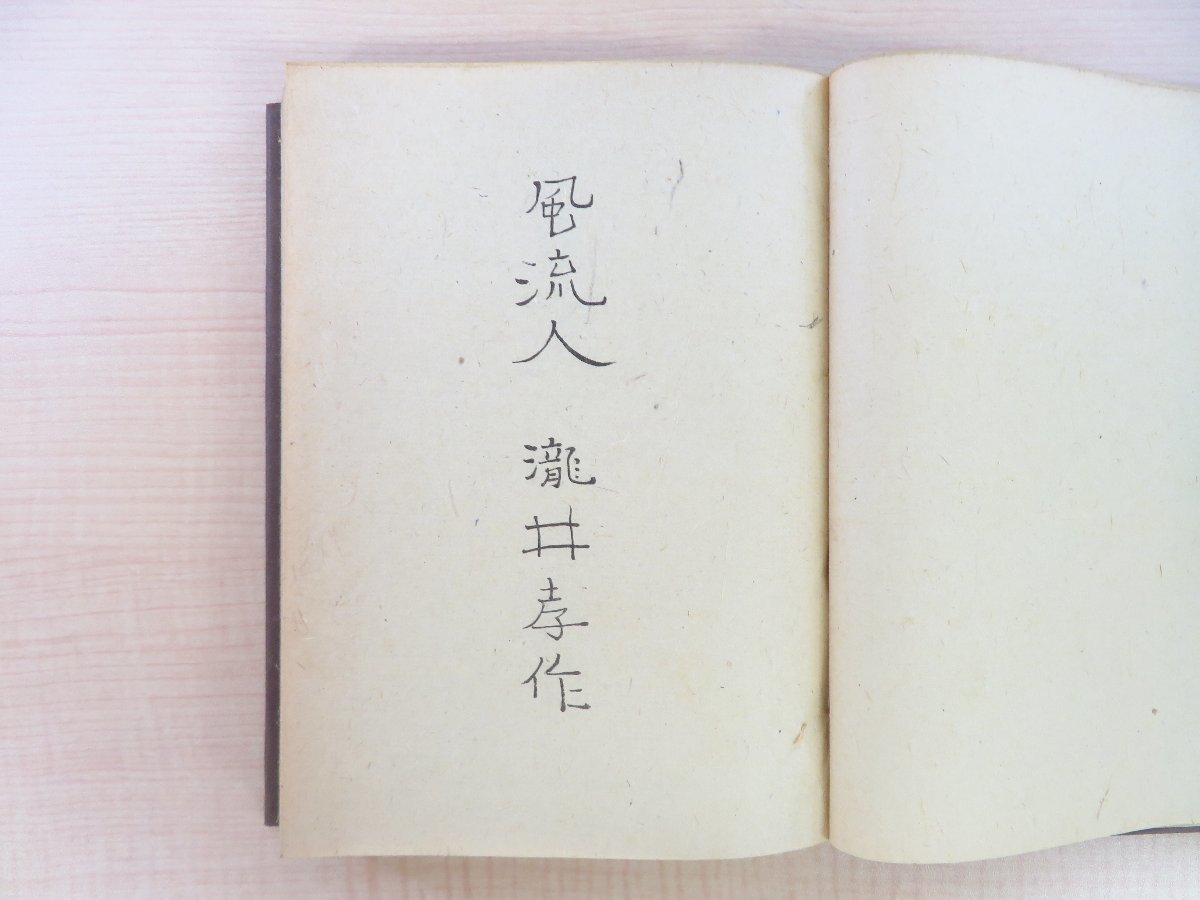 風流人 瀧井孝作